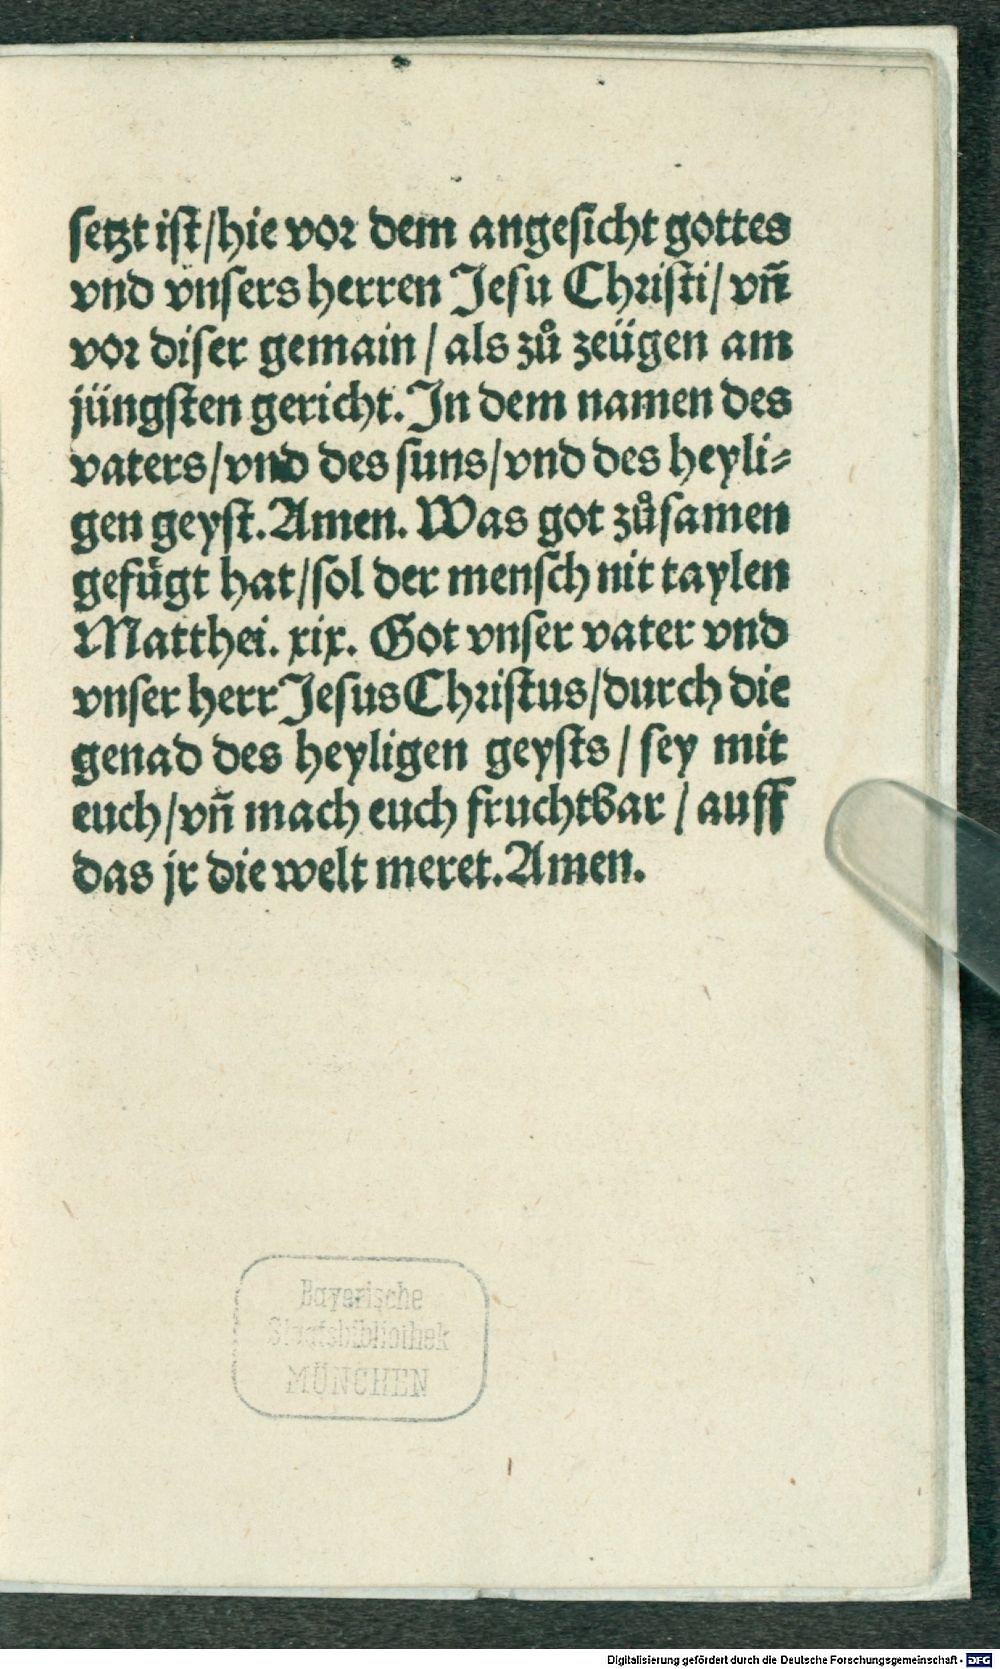 setzt ist/hie vor dem angesicht gottes
vnd vnsers herren Jesu Christi/vñ
vor diser gemain/als zů zeügen am
jüngsten gericht. In dem namen des
vaters/vnd des suns/vnd des heyli-
gen geyst. Amen. Was got zůsamen
gefügt hat/sol der mensch nit taylen
Matthei. xix. Got vnser vater vnd
vnser herr Jesus Christus/durch die
genad des heyligen geysts/sey mit
euch/vñ mach euch fruchtbar/auff
das jr die welt meret. Amen.
Bayerische
Staatsbibliothek
MÜNCHEN
Digitalisierung gefördert durch die Deutsche Forschungsgemeinschaft - DFG